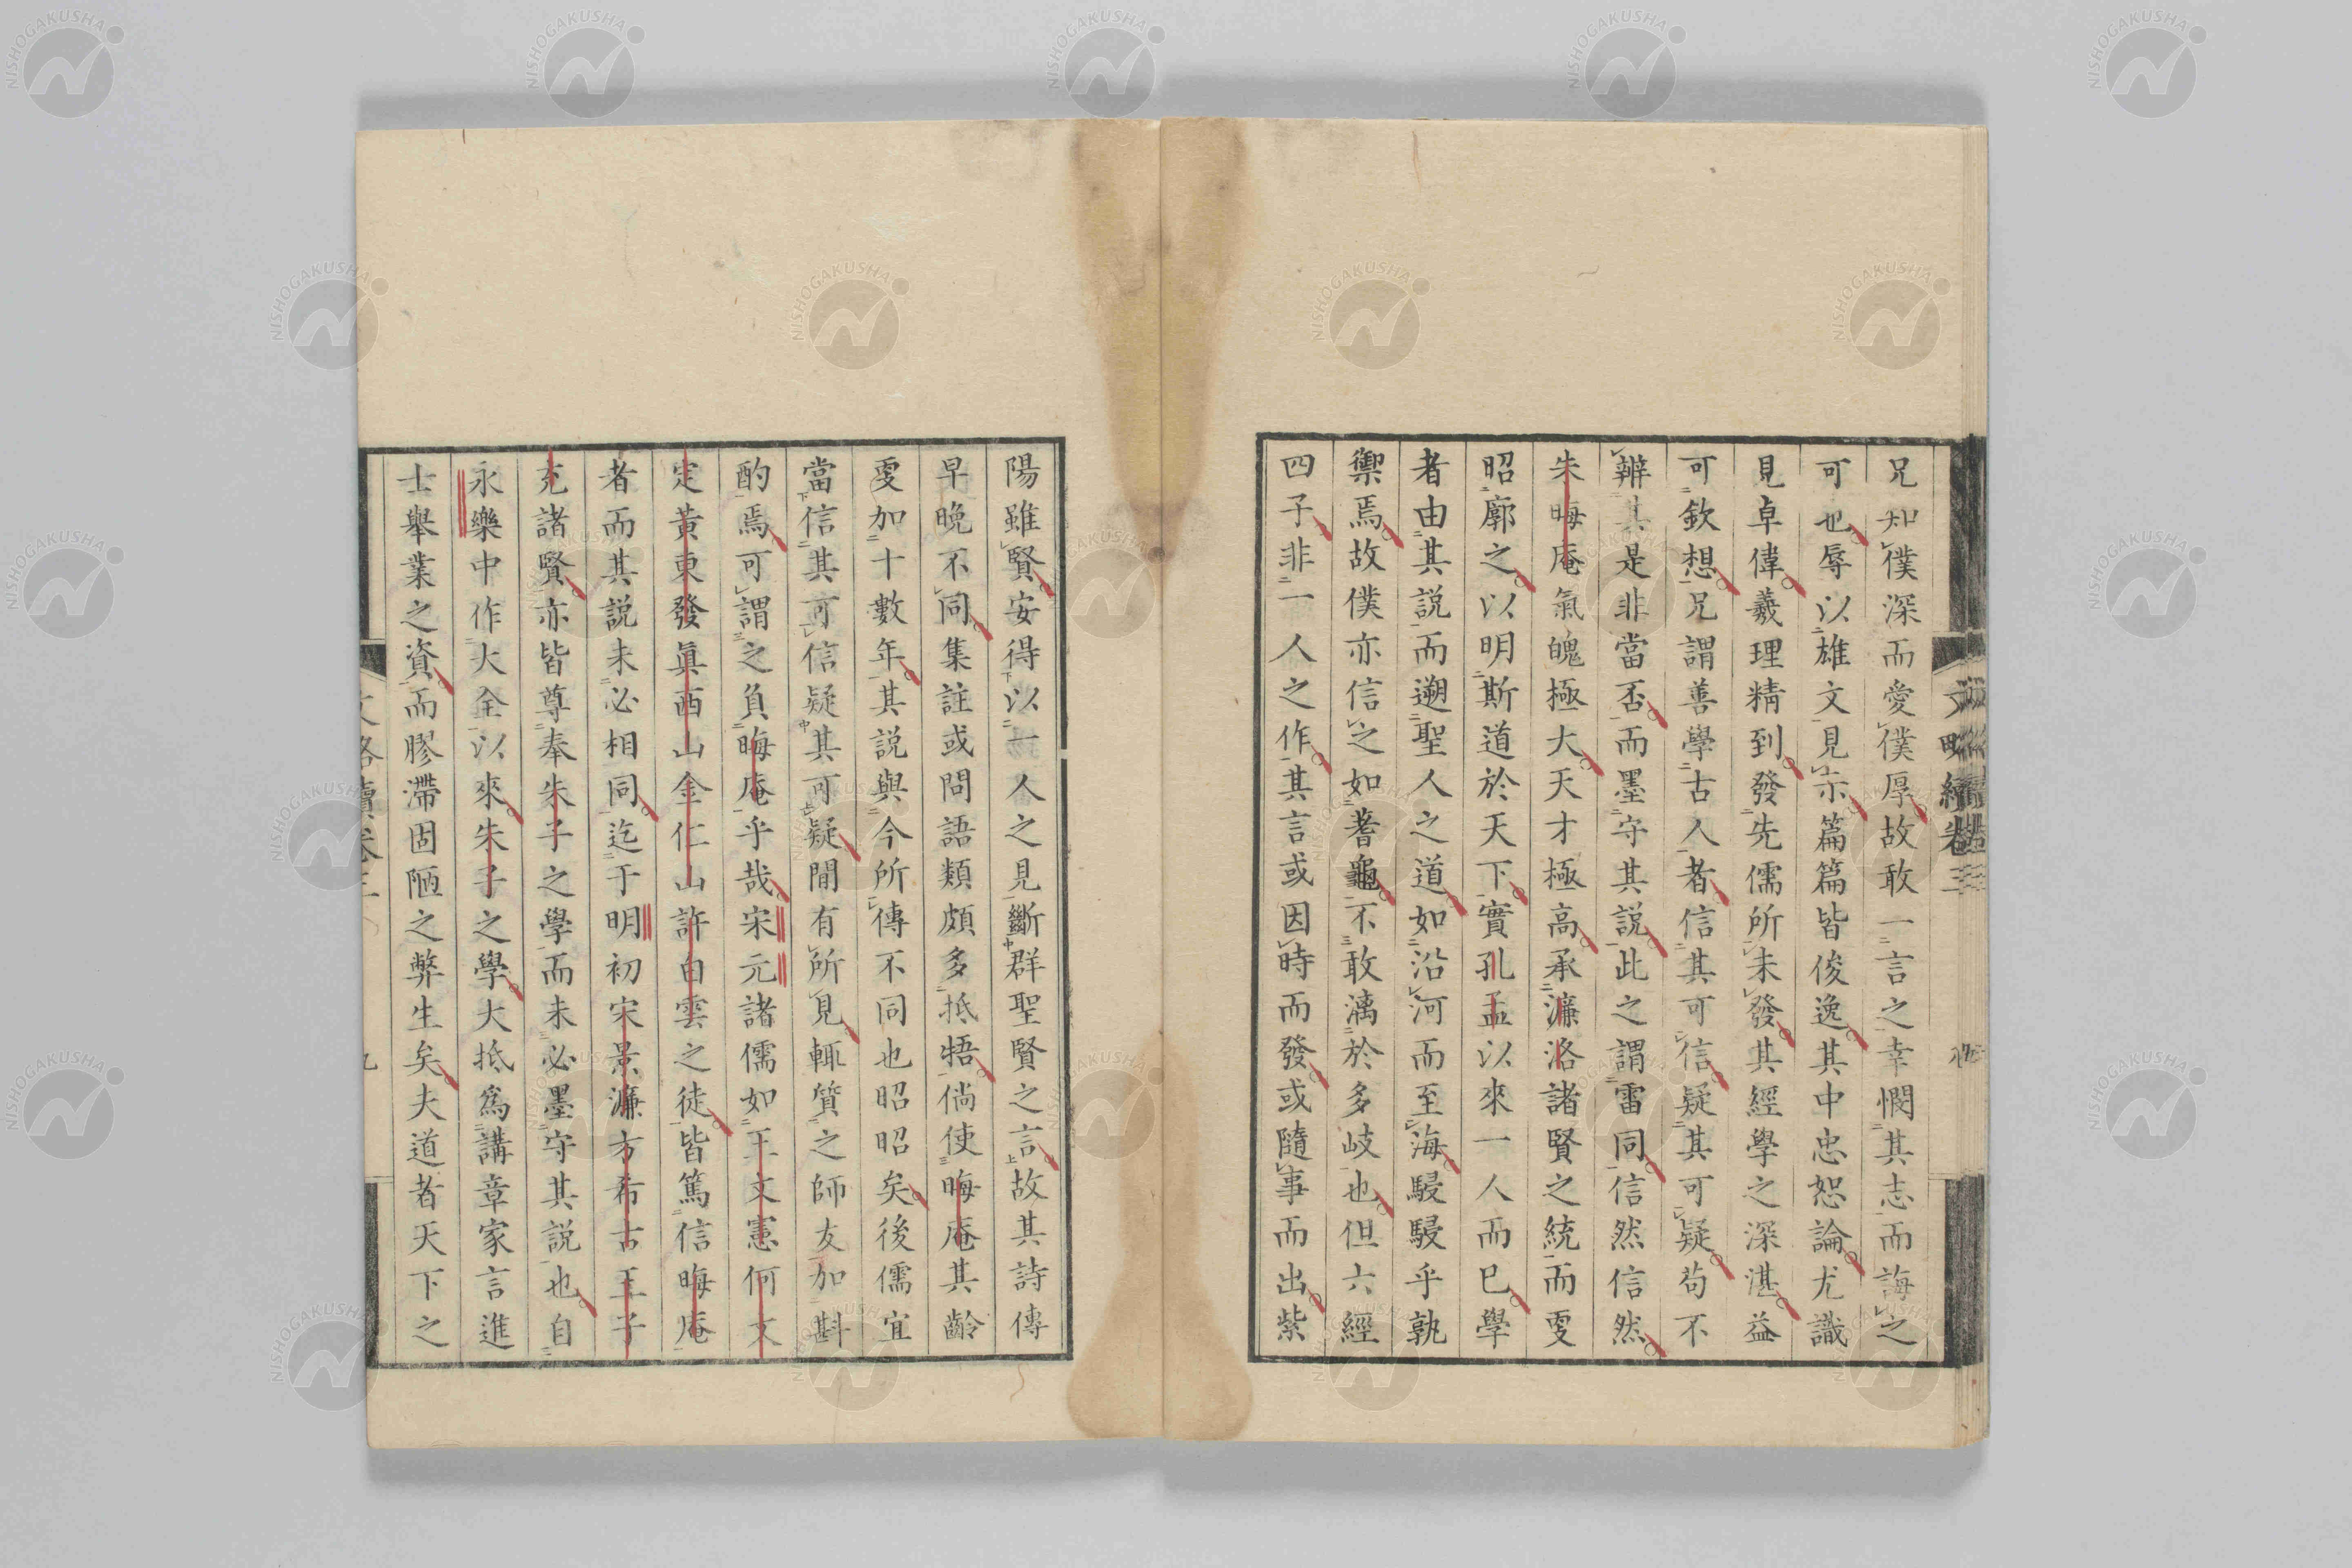 兄知僕深而愛僕厚故敢一言之幸憫其志而誨之
可也辱以雄文見示篇篇皆俊逸其中忠恕論尤識
見卓偉義理精到發先儒所未發其經學之深湛益
可欽想兄謂善學古人者信其可信疑其可疑苟不
辨其是非當否而墨守其説此之謂雷同信然信然
朱晦庵氣魄極大天才極高承濂洛諸賢之統而雯
昭廓之以明斯道於天下實孔孟以來一人而已學
者由其説而遡聖人之道如沿河而至海駸駸乎孰
禦焉故僕亦信之如蓍龜不敢漓於多岐也但六經
四子非一人之作其言或因時而發或隨事而出紫
陽雖賢安得以一人之見斷群聖賢之言故其詩傳
早晚不同集註或問語類頗多抵牾倘使晦庵其齡
雯加十數年其説與今所傳不同也昭昭矣後儒宜
當信其可信疑其可疑間有所見輒質之師友加斟
酌焉可謂之負晦庵乎哉宋元諸儒如王文憲何文
定黃東發眞西山金仁山許白雲之徒皆篤信晦庵
者而其説未必相同迄于明初宋景濂方希古王子
充諸賢亦皆尊奉朱子之學而未必墨守其説也自
永樂中作大全以來朱子之學大抵爲講章家言進
士舉業之資而膠滯固陋之弊生矣夫道者天下之
文略續卷三
九
NISHOGAKUSHA